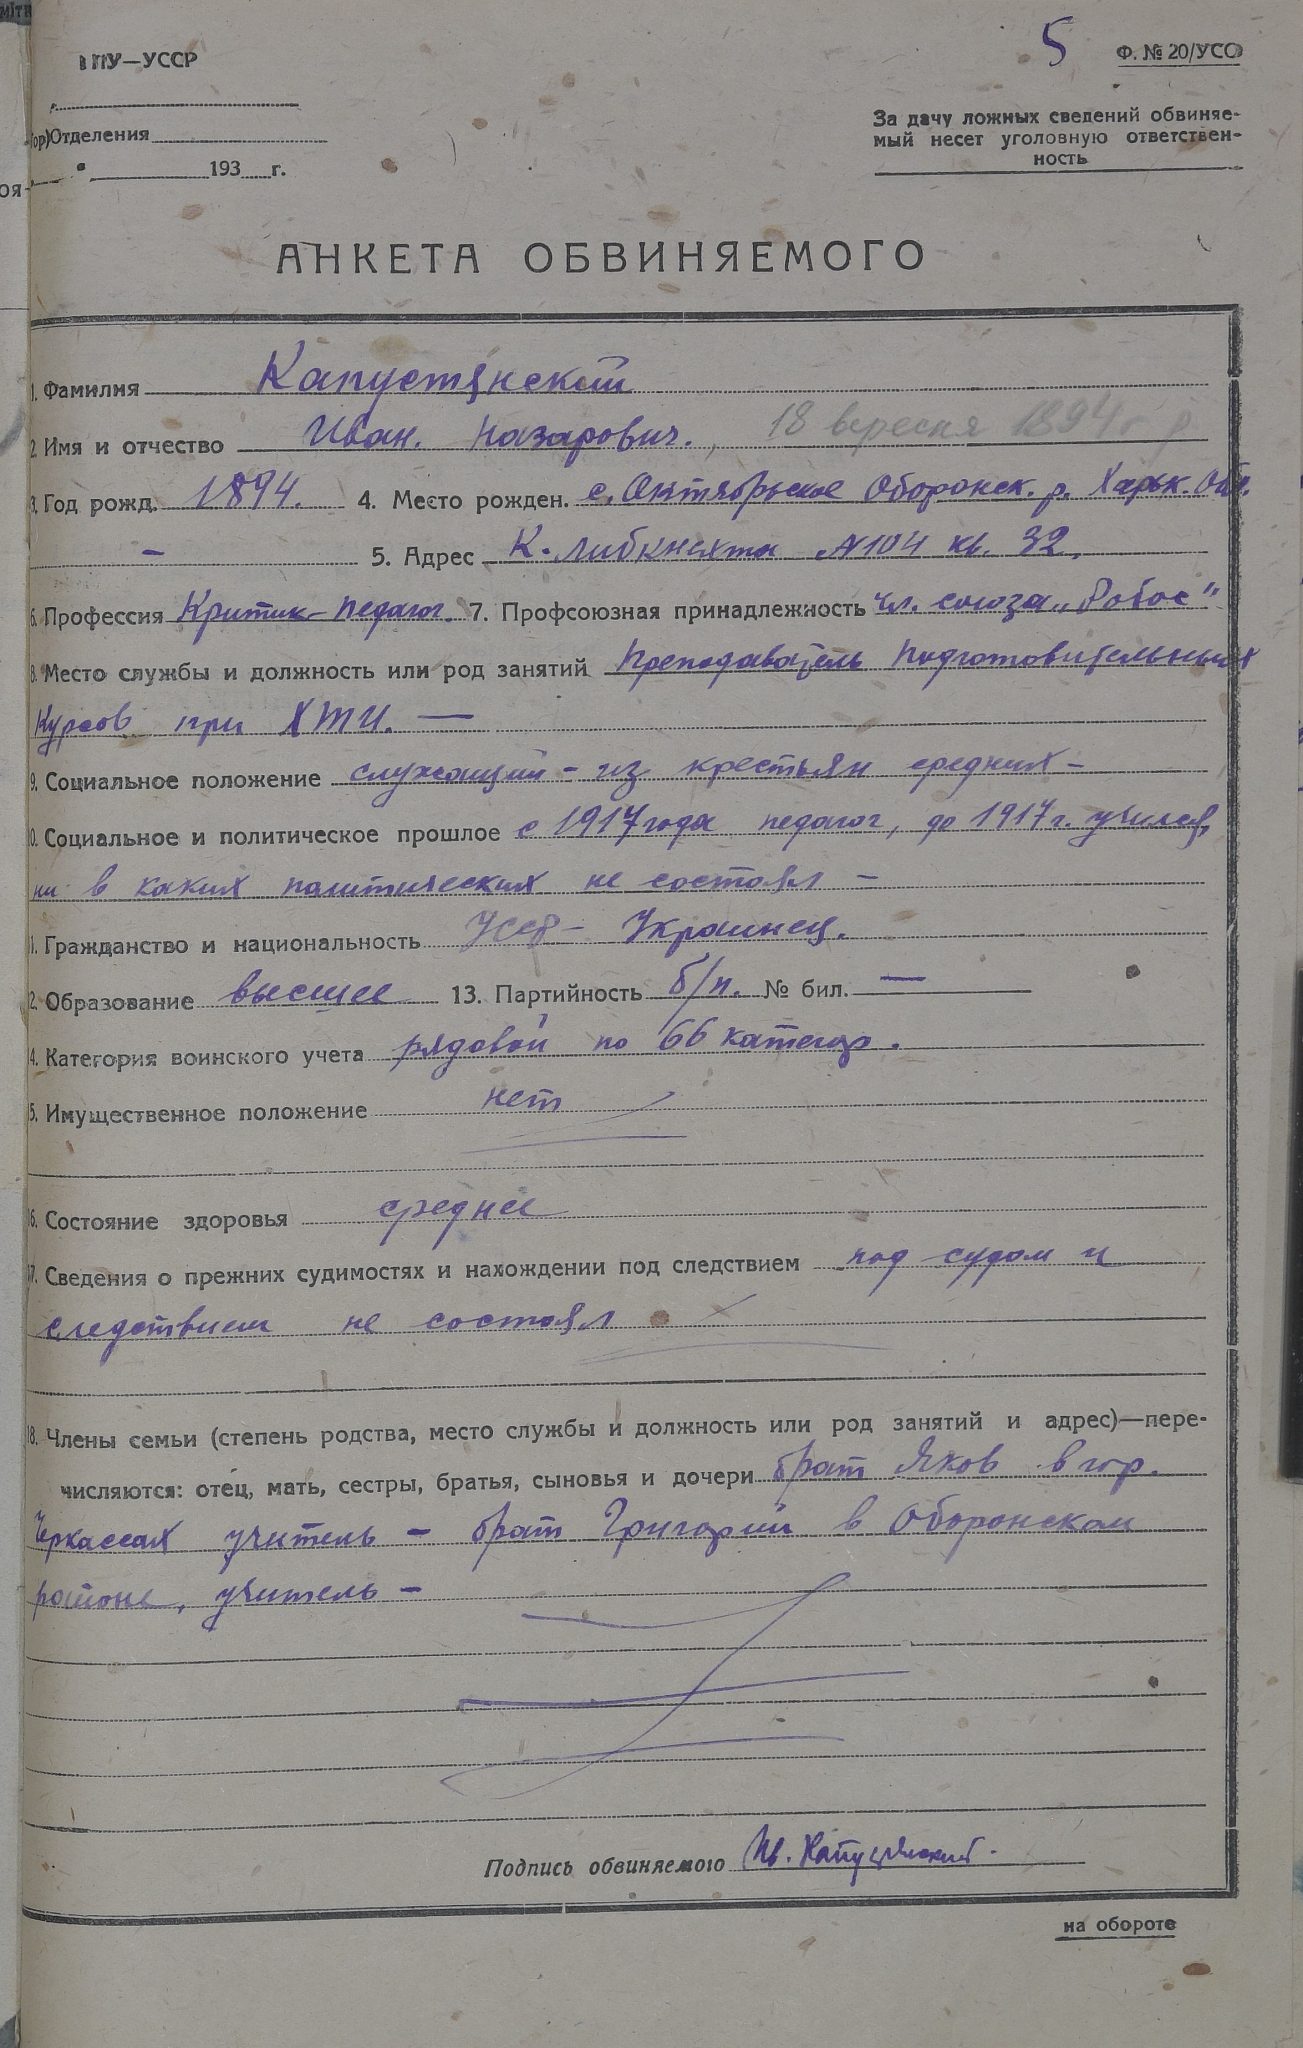 ГПУ—УССР
5
Ф. № 20/УСО
Отделения
193 г.
За дачу ложных сведений обвиняе-
мый несет уголовную ответствен-
ность
АНКЕТА ОБВИНЯЕМОГО
1. Фамилия Капустянский
2. Имя и отчество Иван. Назарович., 18 вересня 1894 г
3. Год рожд. 1894. 4. Место рожден. с. Октябрьское Оборонск. р. Харьк. Обл.
— 5. Адрес К. Либкнехта №104 кв. 32.
6. Профессия Критик-педагог. 7. Профсоюзная принадлежность чл. союза „Робос"
8. Место службы и должность или род занятий Преподаватель Подготовительных
Курсов при ХТИ. —
9. Социальное положение служащий - из крестьян средних -
10. Социальное и политическое прошлое с 1917 года педагог, до 1917 г. учился,
ни в каких политических не состоял —
11. Гражданство и национальность УССР - Украинец.
12. Образование высшее 13. Партийность б/п. № бил. —
14. Категория воинского учета рядовой по 66 категор.
15. Имущественное положение нет
16. Состояние здоровья среднее
17. Сведения о прежних судимостях и нахождении под следствием под судом и
следствием не состоял
18. Члены семьи (степень родства, место службы и должность или род занятий и адрес)—пере-
числяются: отец, мать, сестры, братья, сыновья и дочери брат Яков в гор.
Черкассах учитель - брат Григорий в Оборонском
районе, учитель -
Подпись обвиняемого Ив. Капустянский.
на обороте